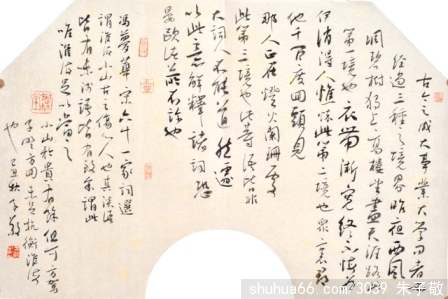 古今之成大事業大學問者
經過三種之境界昨夜西風
凋碧樹獨上高樓望盡天涯路
第一境也衣帶漸寬終不悔為
伊消得人憔悴此第二境也眾裏尋
他千百度回頭見
那人正在燈火闌珊處
此第三境也此等語皆非
大詞人不能道然遽
以此意解釋諸詞恐
晏歐諸所不許也
馮夢華宋六十一家詞選
謂淮海小山古之傷心人也其淡語
皆有味淺語皆有致余謂此
唯淮海足以當之
小山矜貴有餘但可方駕
子野方回未足抗衡淮海
也己丑秋子敬
shuhua66.com/3039 朱子敬